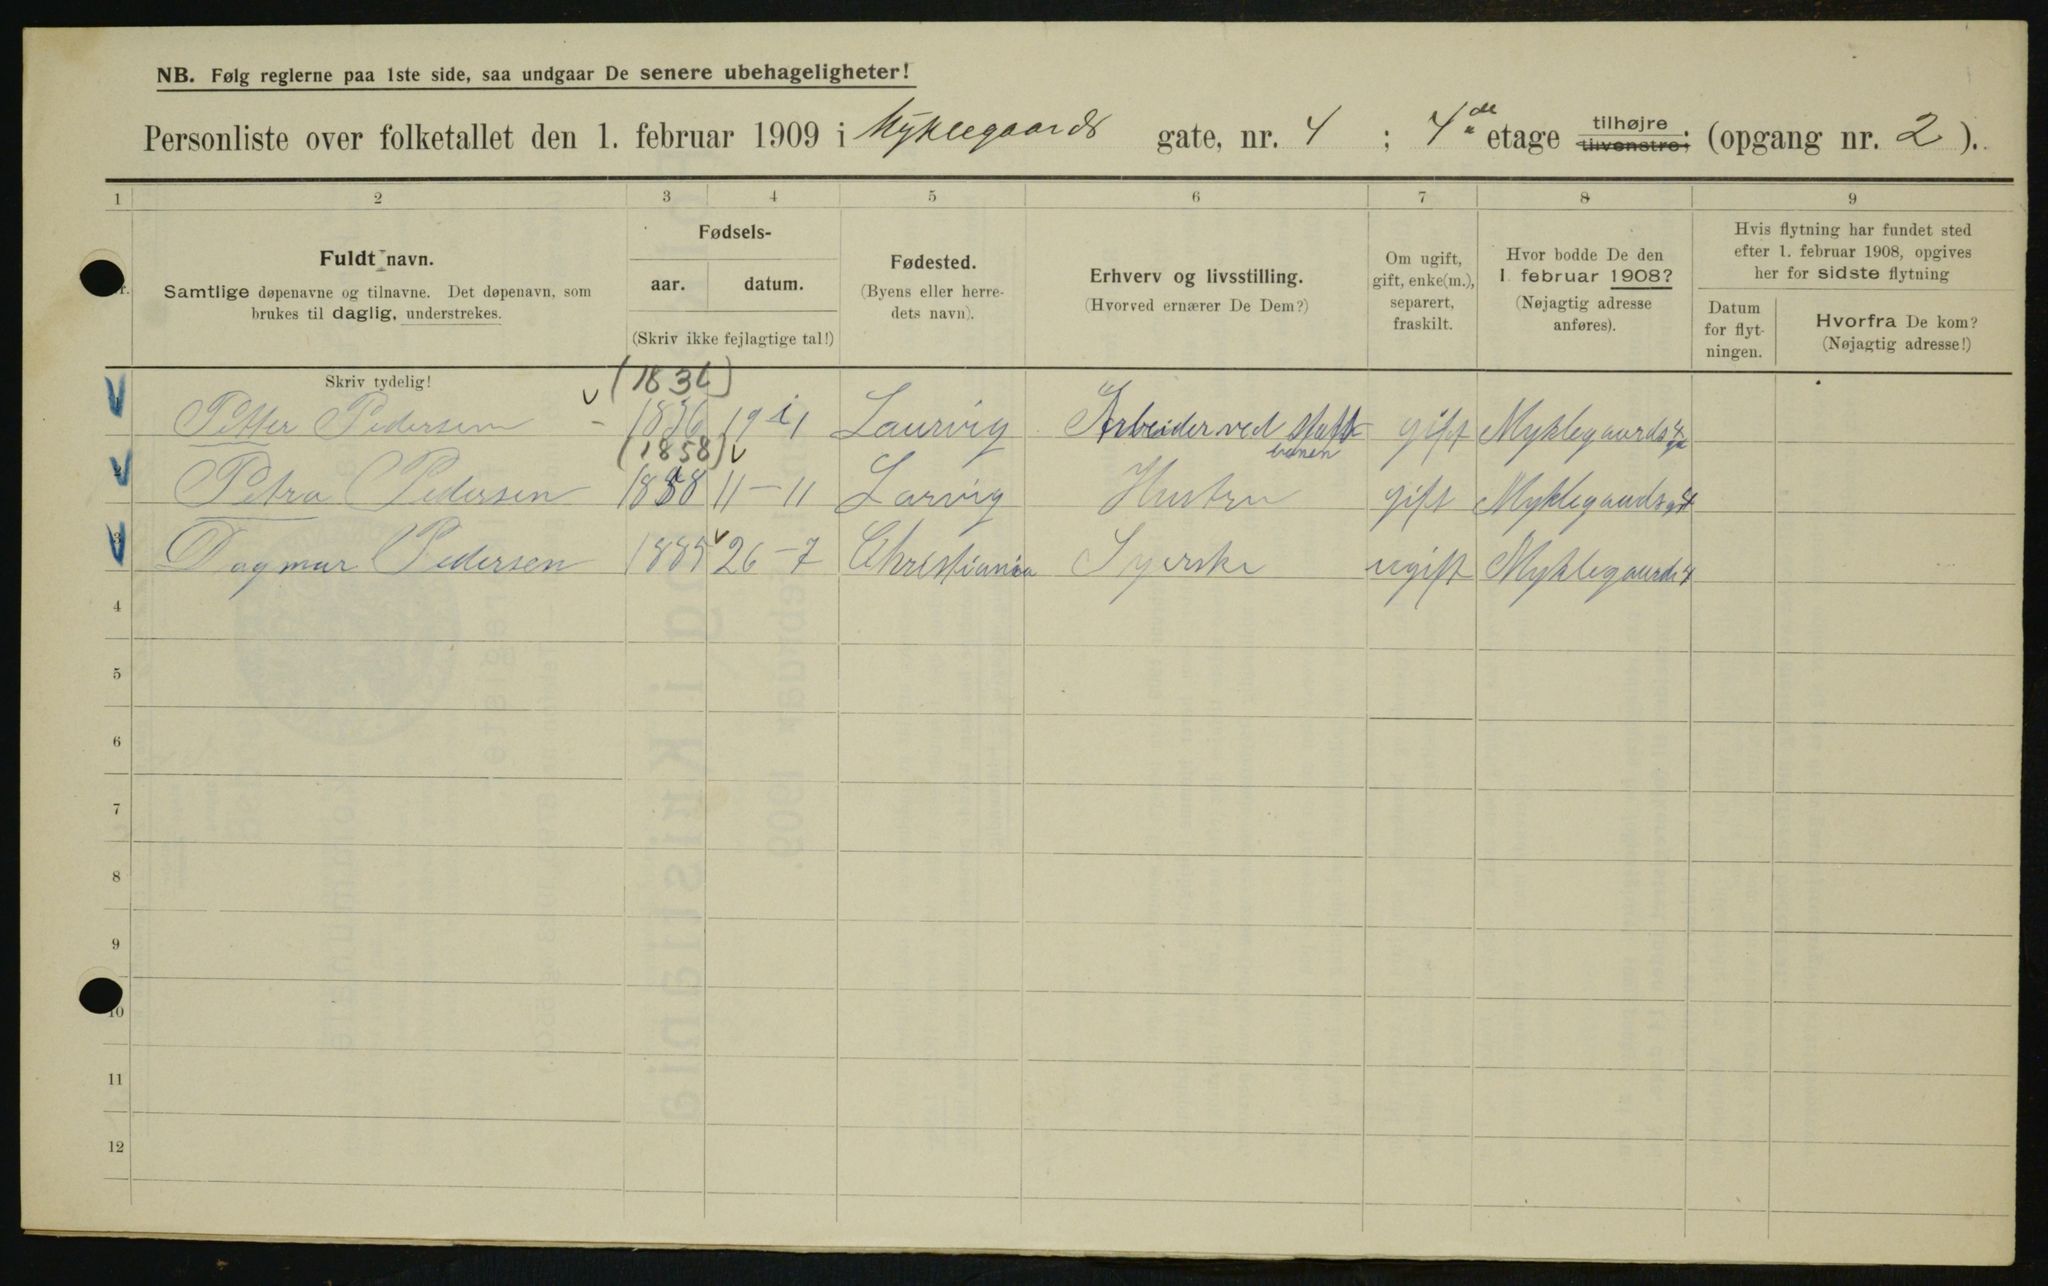 NB. Følg reglerne paa 1ste side, saa undgaar De senere ubehageligheter!
Personliste over folketallet den 1. februar 1909 i Myklegaards gate, nr. 4 ; 4de etage tilhøjre tilvenstre; (opgang nr. 2 ).
1 2 3 4 5 6 7 8 9
Fuldt navn.
Samtlige døpenavne og tilnavne. Det døpenavn, som
brukes til daglig, understrekes.
Skriv tydelig!
Fødsels-
aar. datum.
(Skriv ikke fejlagtige tal!)
Fødested.
(Byens eller herre-
dets navn).
Erhverv og livsstilling.
(Hvorved ernærer De Dem?)
Om ugift,
gift, enke(m.),
separert,
fraskilt.
Hvor bodde De den
1. februar 1908?
(Nøjagtig adresse
anføres).
Hvis flytning har fundet sted
efter 1. februar 1908, opgives
her for sidste flytning
Datum
for flyt-
ningen.
Hvorfra De kom?
(Nøjagtig adresse!)
Petter Pedersen Laurvig Arbeider ved Stats- gift Myklegaards
banen
(1858)
2 Petra Pedersen 1858 11-11 Larvig Hustru gift Myklegaards
3 Dagmar Pedersen 26-7 Christiania Syerske ugift Myklegaards 4
4
5
6
7
8
9
10
11
12